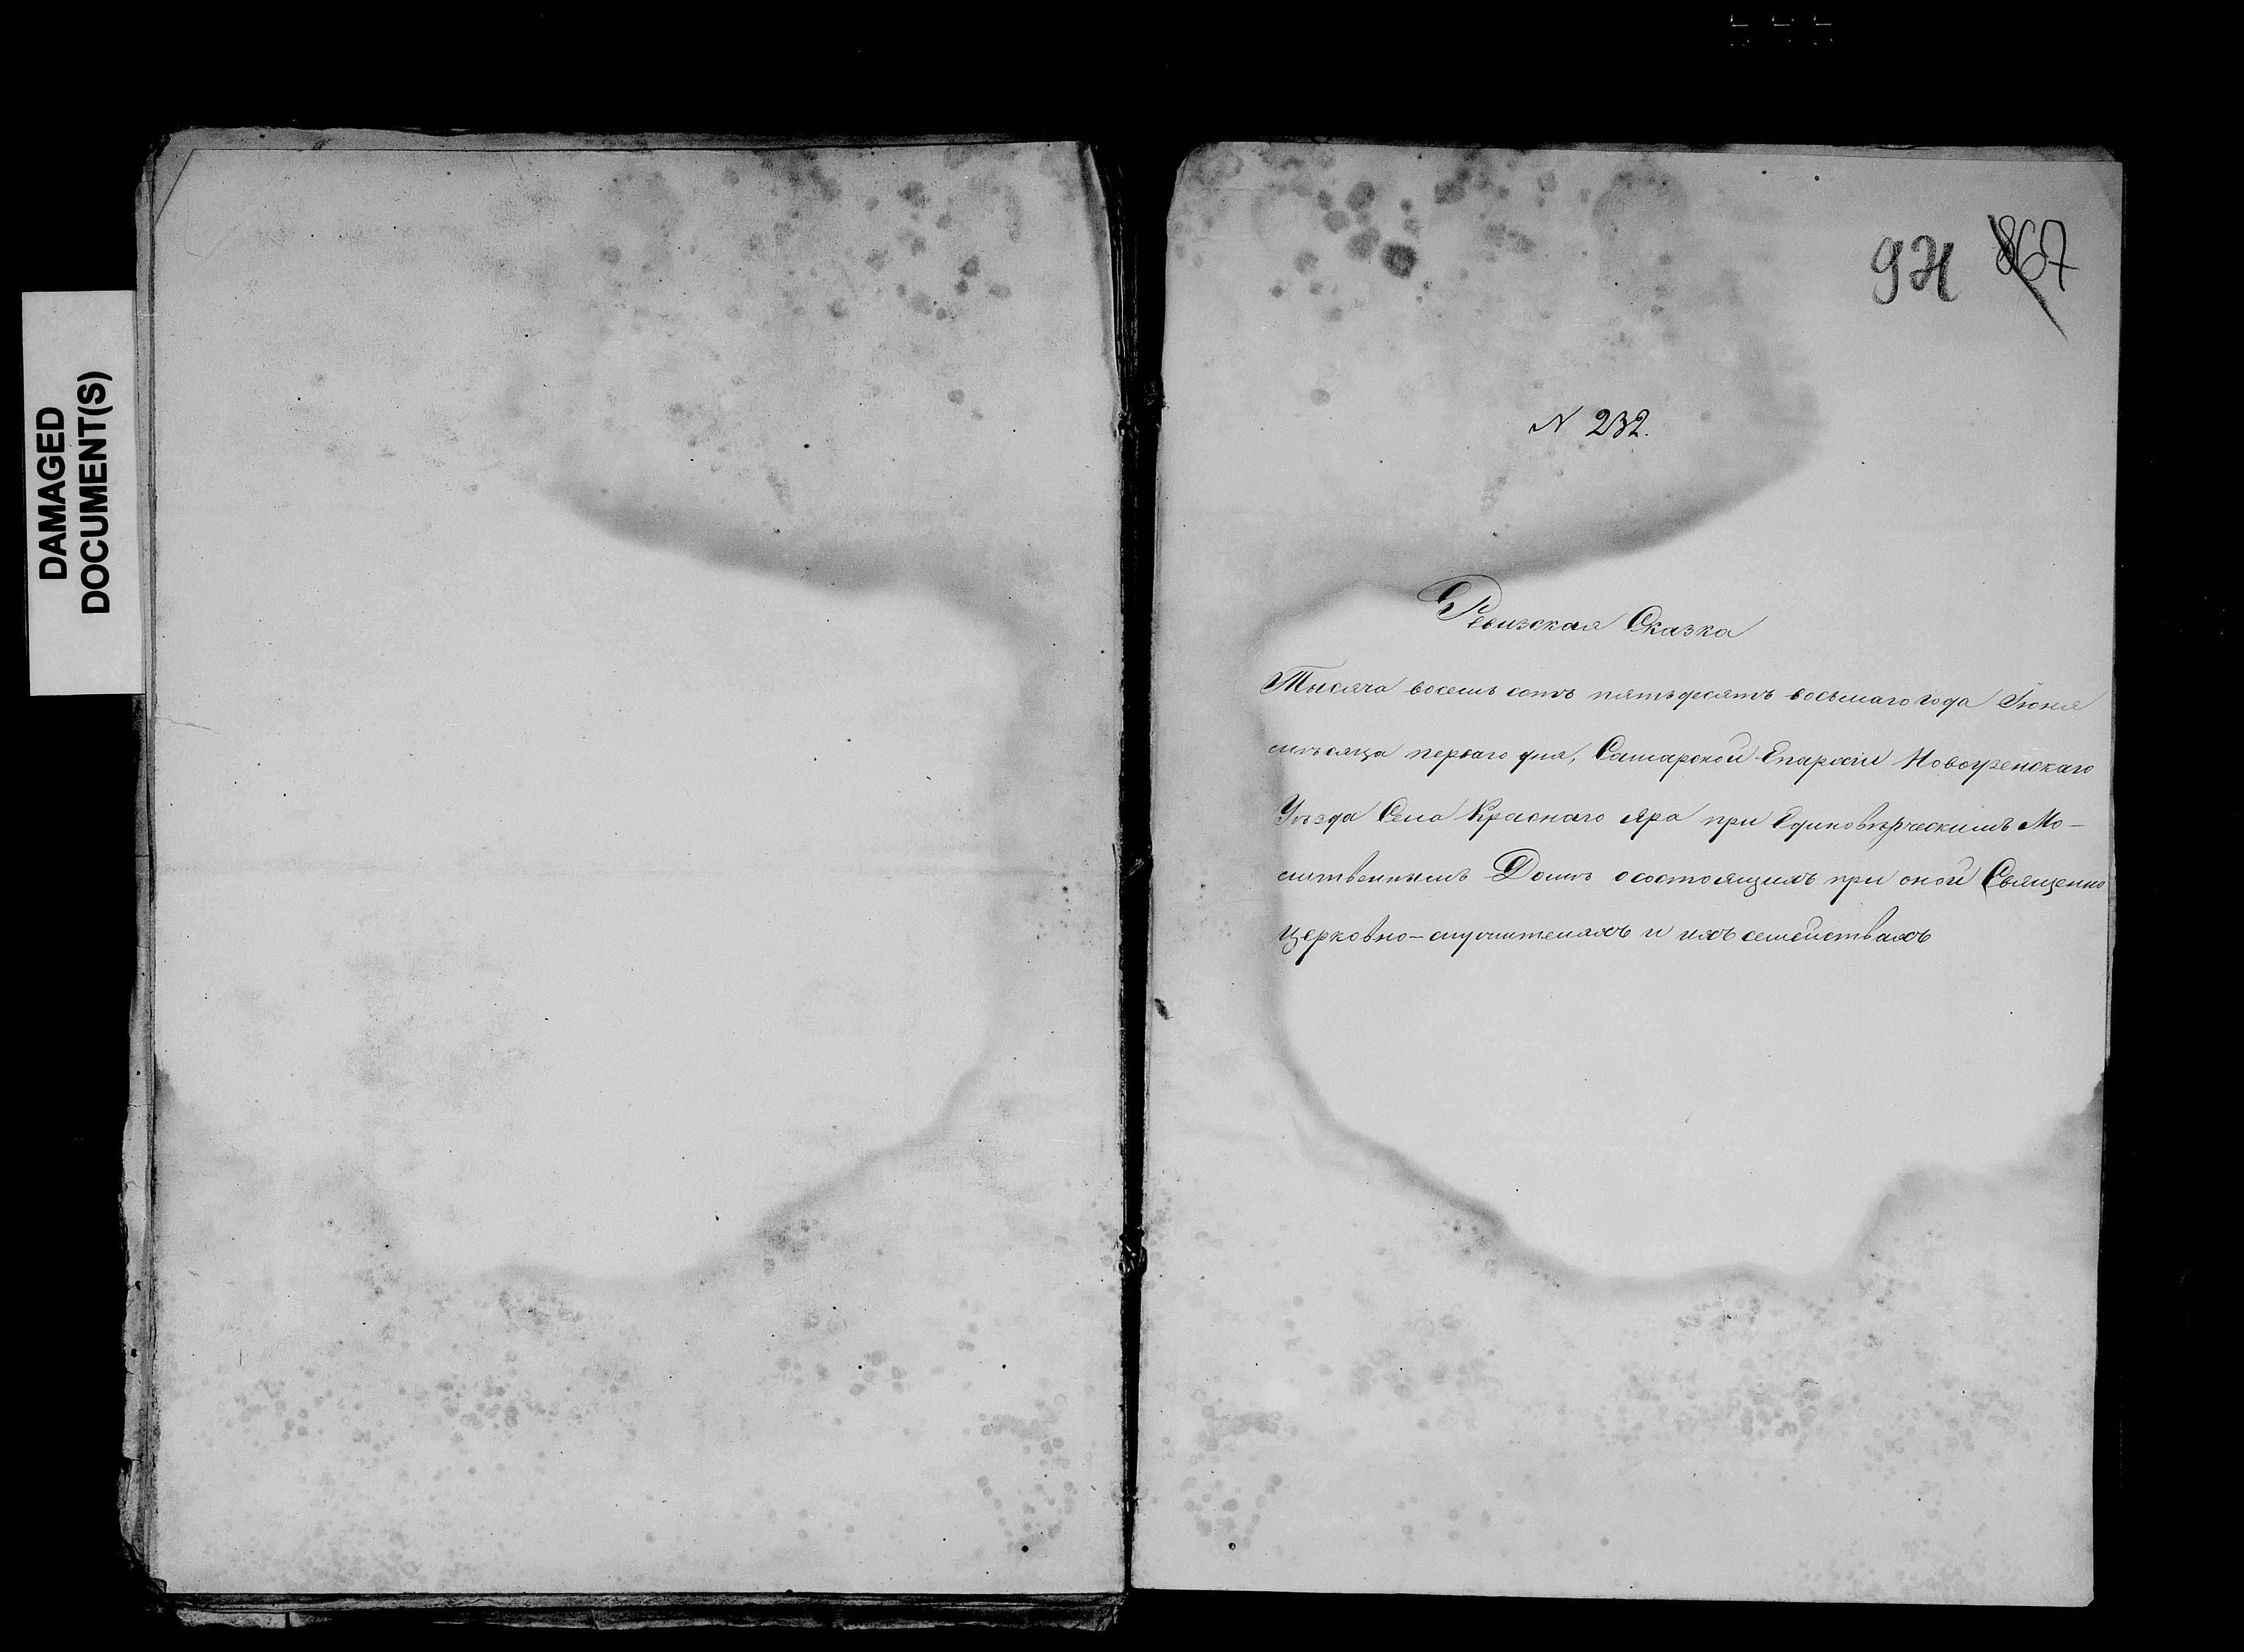 DAMAGED
DOCUMENT(S)
867
N 232.
Ревизская Сказка
Тысяча восемь сотъ пятьдесятъ восьмаго года Іюня
мѣсяца перваго дня, Самарской Епархіи Новоузенскаго
Уѣзда Села Краснаго Яра при Единовѣрческимъ Мо-
литвеннымъ Домѣ о состоящихъ при оной Священно
церковно-служителяхъ и ихъ семействахъ